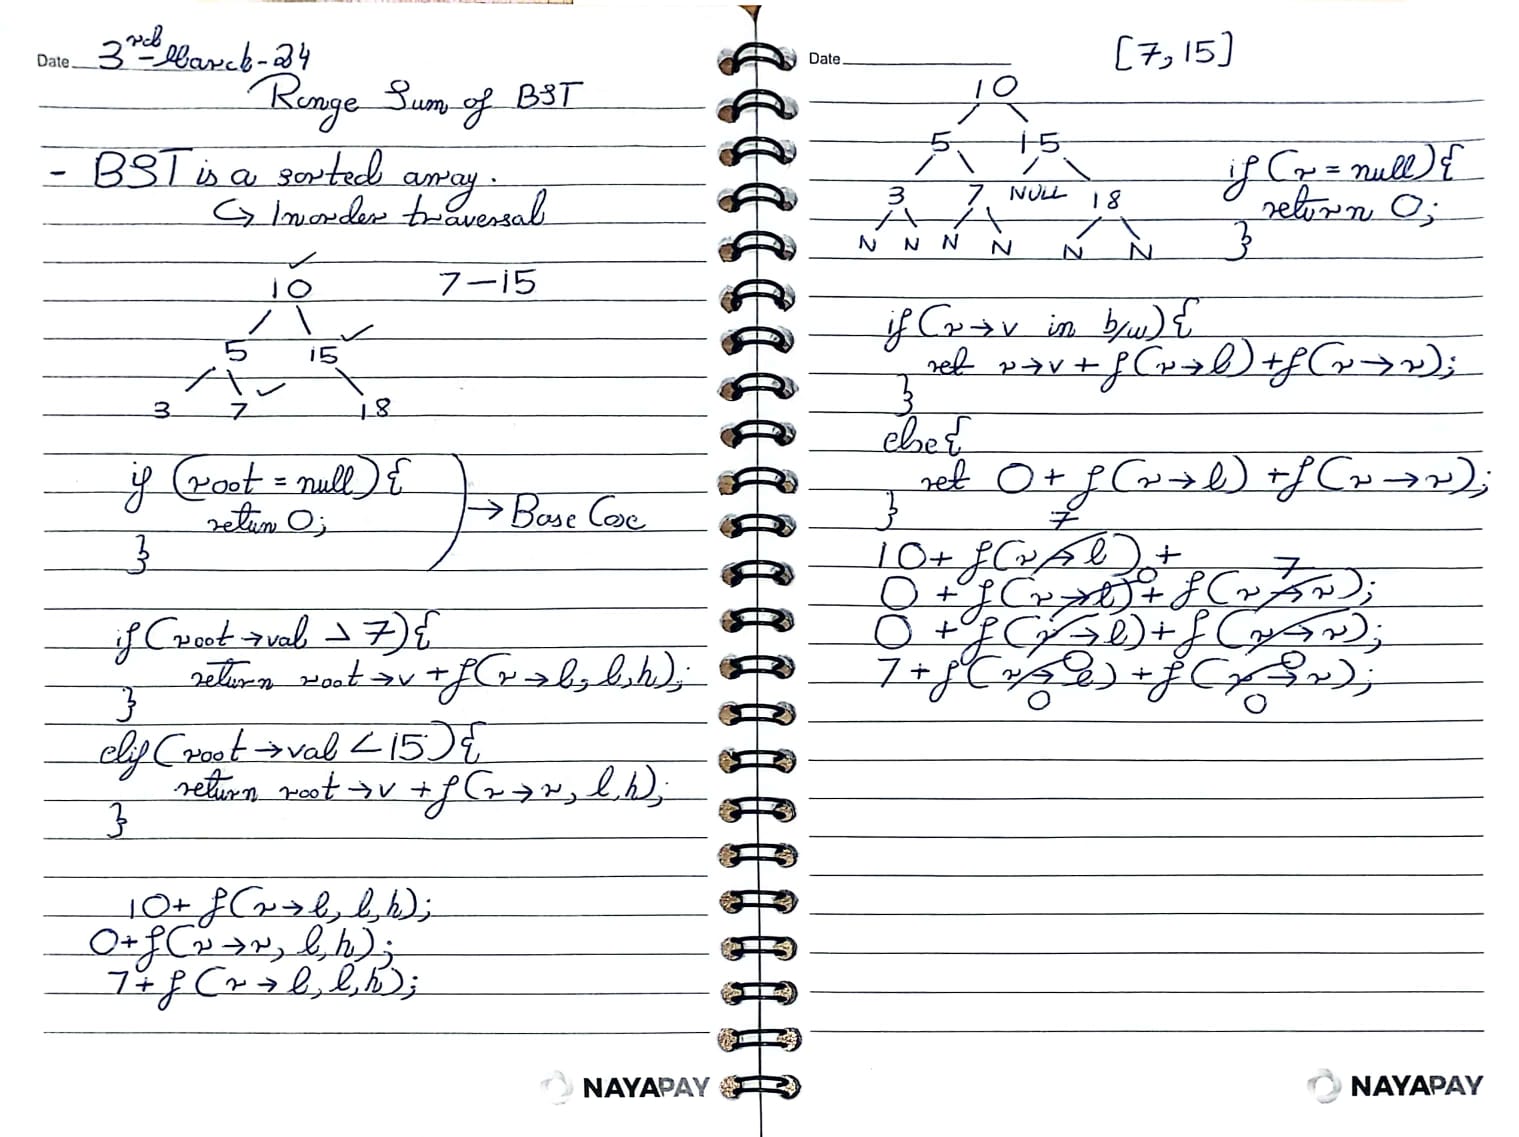 Date 3rd-March-24
Range Sum of BST
- BST is a sorted array.
↳ Inorder traversal
10 7-15
5 15
3 7 18
if (root = null) {
return 0;
} → Base Case
if (root → val > 7) {
return root → v + f(r → l, l, h);
}
elif (root → val < 15) {
return root → v + f(r → r, l, h);
}
10+ f(r → l, l, h);
0+ f(r → r, l, h);
7+ f(r → l, l, h);
NAYAPAY
Date [7, 15]
10
5 15
3 7 NULL 18
N N N N N N
if (r = null) {
return 0;
}
if (r → v in b/w) {
ret r → v + f(r → l) + f(r → r);
}
else {
ret 0 + f(r → l) + f(r → r);
}
7
10+ f(r → l) +
0 7
0 + f(r → l) + f(r → r);
0 + f(r → l) + f(r → r);
0 0
7 + f(r → l) + f(r → r);
0 0
NAYAPAY